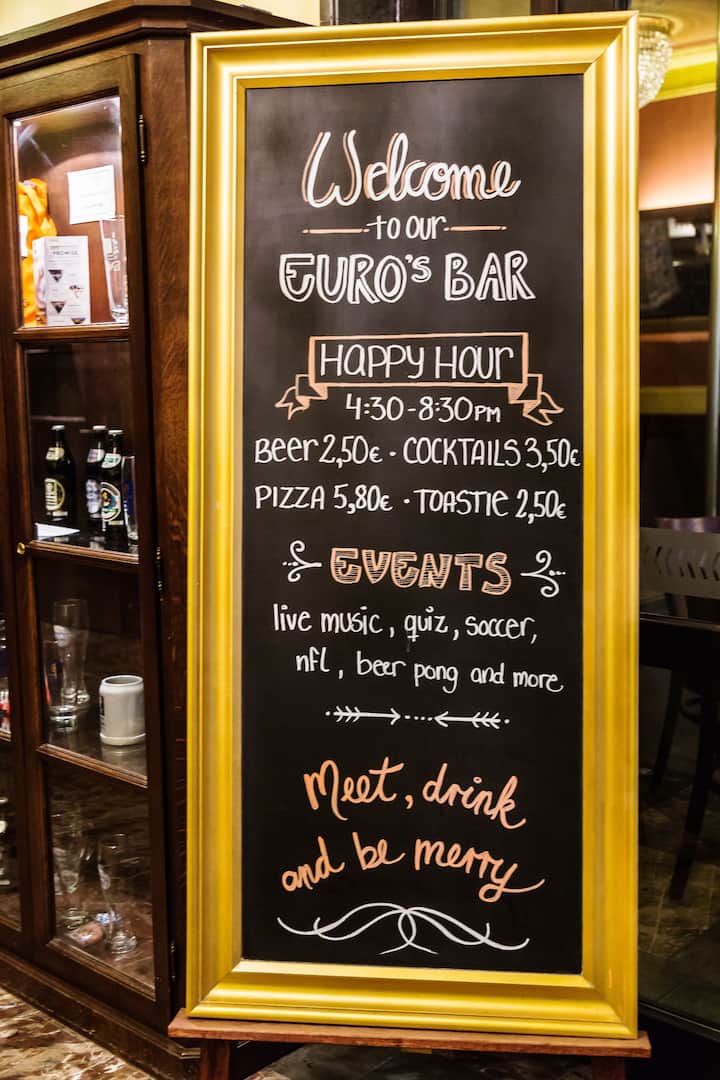 Welcome
to our
EURO'S BAR
HAPPY HOUR
4:30-8:30PM
Beer 2,50€ · COCKTAILS 3,50€
PIZZA 5,80€ · TOASTIE 2,50€
EVENTS
live music, quiz, soccer,
nfl, beer pong and more
Meet, drink
and be merry